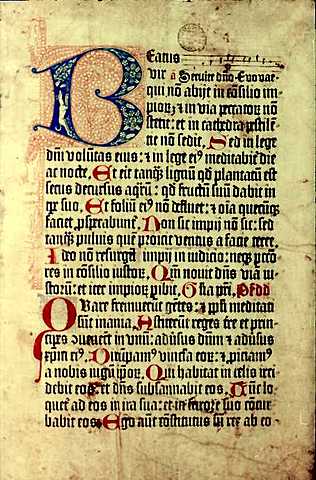 Beatus
vir ā Seruite dño Euouae
qui nō abijt in cōsilio im
piorꝫ ⁊ in via pctōrum nō
stetit: et in cathedra pestilē
tie nō sedit, Sed in lege
dñi volūtas eius: ⁊ in lege ei⁹ meditabit̄ die
ac nocte, Et erit tanqꝫ lignū qđ plantatū est
secus decursus aqrū: qđ fructū suū dabit in
tꝑe suo, Et foliū ei⁹ nō defluet: ⁊ oīa quecūqꝫ
faciet, ꝓsperabunt̄, Non sic impij nō sic: sed
tanqꝫ puluis quē proicit ventus a facie terre,
Ideo nō resurgēt impij in iudicio: neqꝫ pctō
res in cōsilio iustorꝫ, Qm̄ nouit dñs viā iu
storū: et iter impiorꝫ ꝑibit, Gl'ia pr̄i, Ps. dd
Quare fremuerūt gētes: ⁊ ppli meditati
sūt inania, Astiterūt reges tre et prin
cipes ꝯuenerūt in vnū: adūsus dñm ⁊ adūsus
xpm ei⁹, Dirūpam⁹ vincla eoꝝ: ⁊ ꝓiciam⁹
a nobis iugū ipoꝝ, Qui habitat in celis irri
debit eos: et dñs subsannabit eos, Tūc lo
quet̄ ad eos in ira sua: et in furore suo cōtur
babit eos, Ego aūt constitutus sū rex ab eo